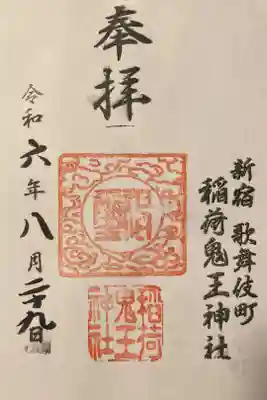 奉拝
新宿 歌舞伎町
稲荷鬼王神社
令和六年八月二十九日
稲荷
鬼王
神社